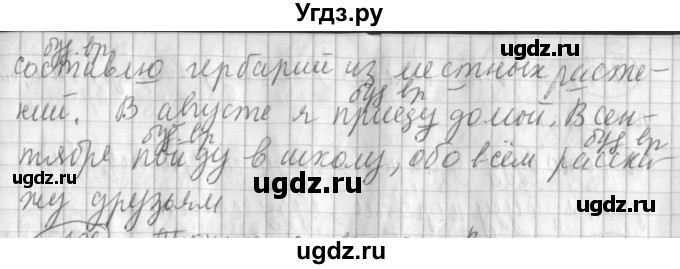 Угдз.ру
буд. вр
составлю гербарий из местных расте-
буд вр
ний. В августе я приезу домой. В сен-
буд. вр буд. вр
тября пойду в школу, обо всём расска-
жу друзьям
ugdz.ru
ugdz.ru
ugdz.ru
ugdz.ru
ugdz.ru
ugdz.ru